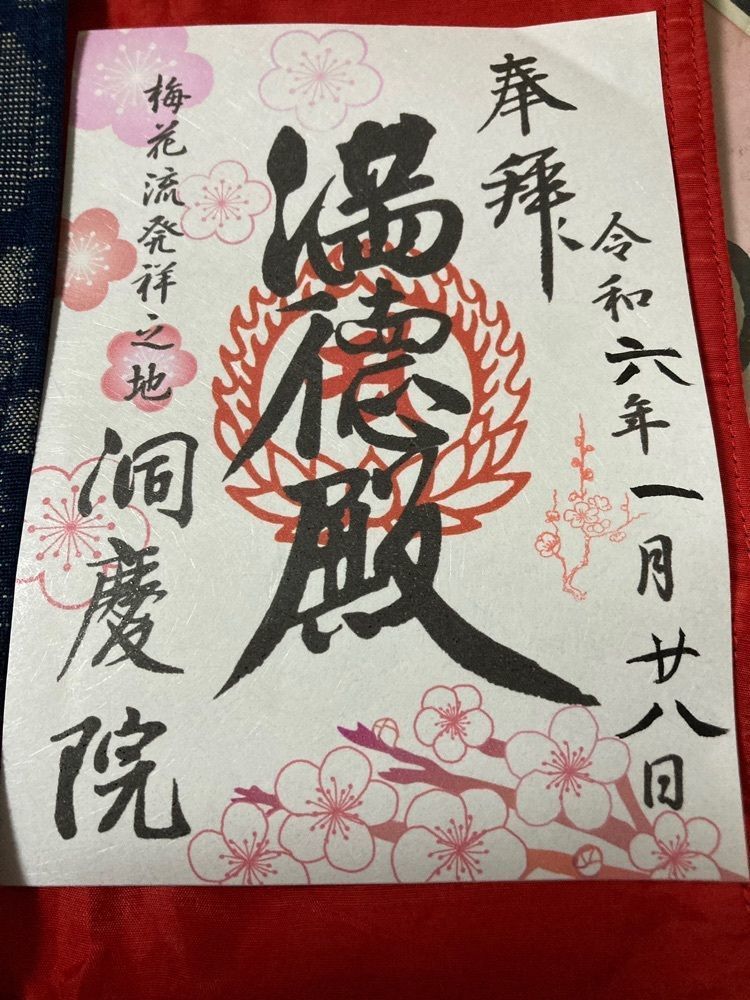 奉拜
令和六年一月廿八日
満德殿
梅花流発祥之地
洞慶院